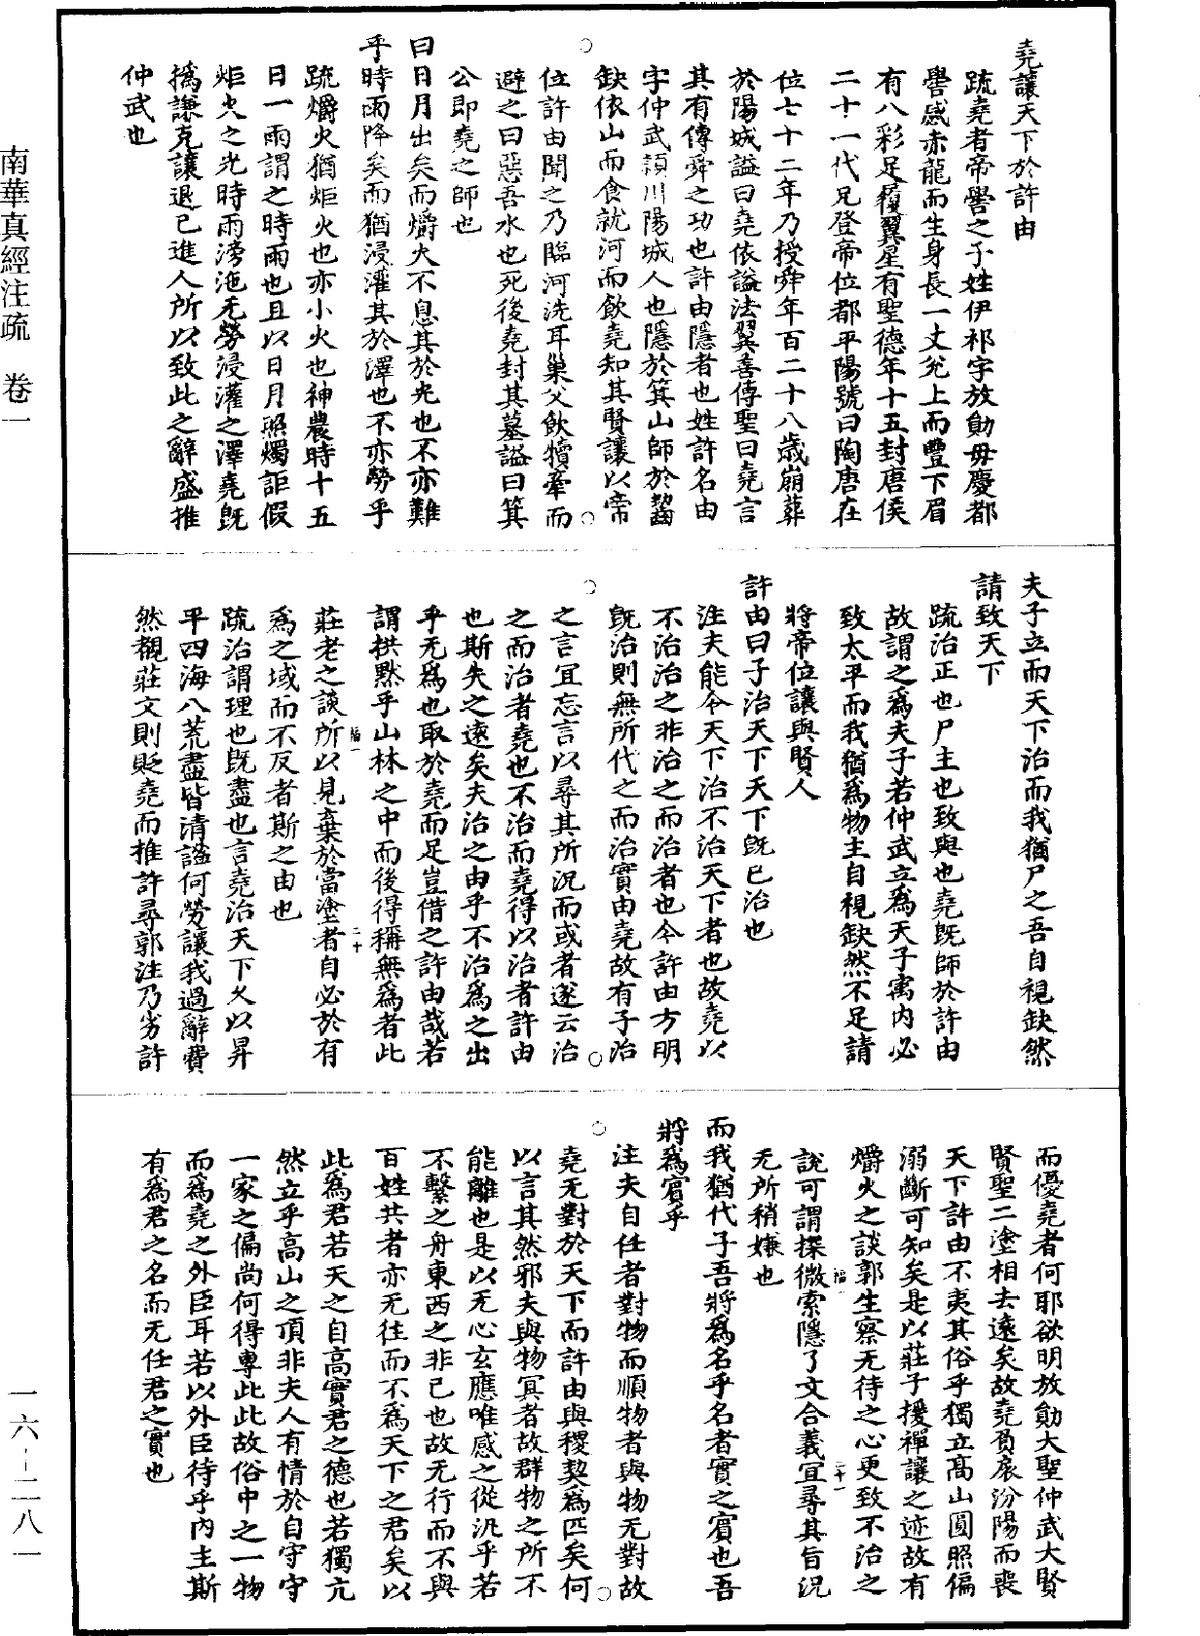 堯讓天下於許由
疏堯者帝嚳之子姓伊祁字放勛母慶都
嚳感赤龍而生身長一丈兊上而豐下眉
有八彩足履翼星有聖德年十五封唐侯
二十一代兄登帝位都平陽號曰陶唐在
位七十二年乃授舜年百二十八歲崩葬
於陽城謚曰堯依謚法翼善傳聖曰堯言
其有傳舜之功也許由隱者也姓許名由
字仲武潁川陽城人也隱於箕山師於齧
缺依山而食就河而飲堯知其賢讓以帝
位許由聞之乃臨河洗耳巢父飲犢牽而
避之曰惡吾水也死後堯封其墓謚曰箕
公即堯之師也
曰日月出矣而爝火不息其於光也不亦難
乎時雨降矣而猶浸灌其於澤也不亦勞乎
疏爝火猶炬火也亦小火也神農時十五
日一雨謂之時雨也且以日月照燭詎假
炬火之光時雨滂沲无勞浸灌之澤堯旣
撝謙克讓退己進人所以致此之辭盛推
仲武也
夫子立而天下治而我猶尸之吾自視缺然
請致天下
疏治正也尸主也致與也堯旣師於許由
故謂之爲夫子若仲武立爲天子寓內必
致太平而我猶爲物主自視缺然不足請
將帝位讓與賢人
許由曰子治天下天下旣已治也
注夫能令天下治不治天下者也故堯以
不治治之非治之而治者也今許由方明
旣治則無所代之而治實由堯故有子治
之言宜忘言以尋其所況而或者遂云治
之而治者堯也不治而堯得以治者許由
也斯失之遠矣夫治之由乎不治爲之出
乎无爲也取於堯而足豈借之許由哉若
謂拱默乎山林之中而後得稱無爲者此
莊老之談所以見棄於當塗者自必於有
爲之域而不反者斯之由也
疏治謂理也旣盡也言堯治天下久以昇
平四海八荒盡皆清謐何勞讓我過辭費
然覩莊文則貶堯而推許尋郭注乃劣許
而優堯者何耶欲明放勛大聖仲武大賢
賢聖二塗相去遠矣故堯負扆汾陽而喪
天下許由不夷其俗乎獨立高山圓照偏
溺斷可知矣是以莊子援禪讓之迹故有
爝火之談郭生察无待之心更致不治之
說可謂探微索隱了文合義宜尋其旨況
无所稍嫌也
而我猶代子吾將爲名乎名者實之賓也吾
將爲賓乎
注夫自任者對物而順物者與物无對故
堯无對於天下而許由與稷契爲匹矣何
以言其然邪夫與物冥者故群物之所不
能離也是以无心玄應唯感之從汎乎若
不繫之舟東西之非己也故无行而不與
百姓共者亦无往而不爲天下之君矣以
此爲君若天之自高實君之德也若獨亢
然立乎高山之頂非夫人有情於自守守
一家之偏尚何得專此此故俗中之一物
而爲堯之外臣耳若以外臣待乎內主斯
有爲君之名而无任君之實也
南華真經注疏 卷一
一六-二八一